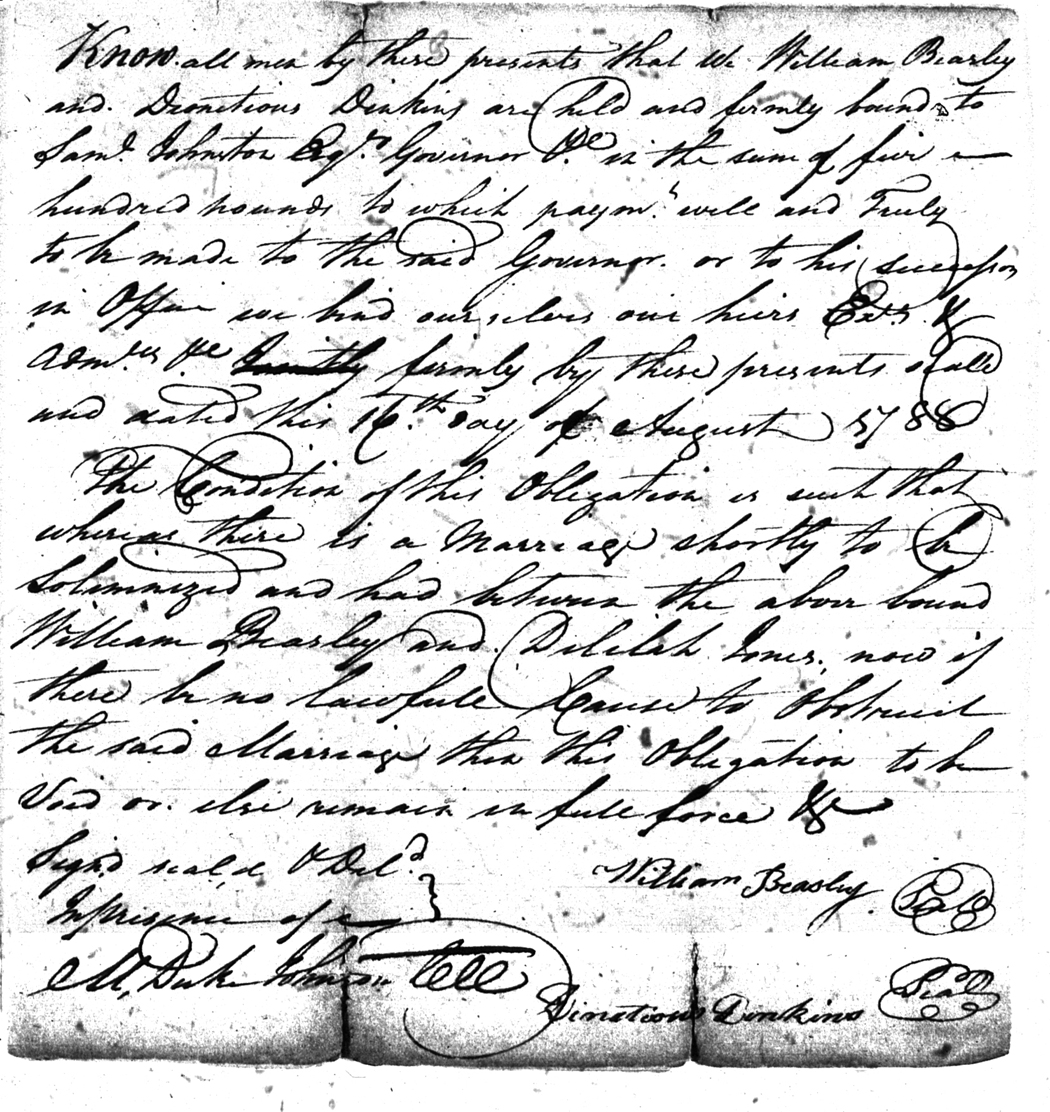 Know all men by these presents that We William Beasley
and Dionitious Dinkins are held and firmly bound to
Saml. Johnston Esqr. Governor &c in the sum of five
hundred pounds to which paymt. well and Truly
to be made to the said Governor or to his successors
in Office we bind ourselves our heirs Exrs &
Admrs &c Jointly firmly by these presents seald
and dated this 16th day of August 1788
The Condition of this Obligation is such that
whereas there is a Marriage shortly to be
Solemnized and had between the above bound
William Beasley and Delilah Jones, now if
there be no lawfull Cause to Obstruct
the said Marriage then this Obligation to be
Void or else remain in full force &c
Signd seal,d & Deld.
In presence of
William Beasley Seal
M, Duke Johnson
Dinatious Dinkins Seal